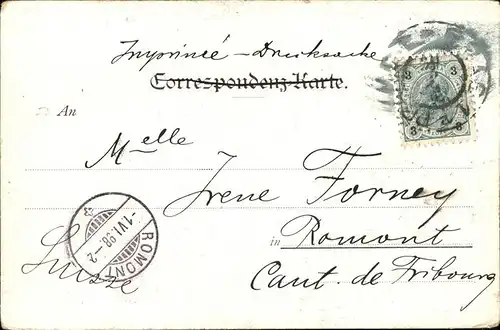 Imprimée – Drucksache
Correspondenz-Karte.
3 3
3 3
An
Melle
Irene Forney
in Romont
Cant. de Fribourg
Suisse
ROMONT
-1.VI.98.-2